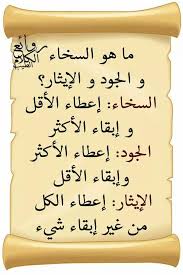 روائع
الكلام
ما هو السخاء
و الجود و الإيثار؟
السخاء: إعطاء الأقل
و إبقاء الأكثر
الجود: إعطاء الأكثر
وإبقاء الأقل
الإيثار: إعطاء الكل
من غير إبقاء شيء